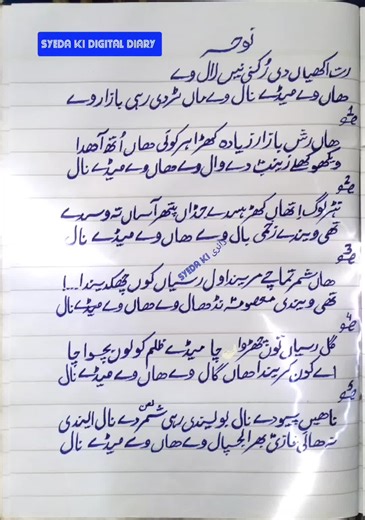 SYEDA KI DIGITAL DIARY
نوحہ
رت اکھیاں دی رُکنی نیں لال وے
ھاں وے میڈے نال وے ماں ٹردی رہی بازار وے
ھاں رش بازار زیادہ کھڑا ھر کوئی ھاں اُتھ آھدا
ویکھو کھلے زینبؑ دے وال وے ھاں وے میڈے نال
2
لوگ اتھاں کھڑ ھسدے جڈاں پتھر آسماں توں وسدے
تھی ویندے زخمی بال وے ھاں وے میڈے نال
3
ھاں شمر تماچے مریندا ول رسیاں کوں چھکیندا
تھی ویندی معصومہ نڈھال وے ھاں وے میڈے نال
SYEDA KI
4
گل رسیاں توں چھڑوا چا میڈے ظلم کولوں بچوا چا
اے کون کریندا ھاں گال وے ھاں وے میڈے نال
5
ناھیں پیو دے نال بولیندی رہی شمر لعن دے نال الیندی
نہ ھائی غازیؑ بھرا لجپال وے ھاں وے میڈے نال